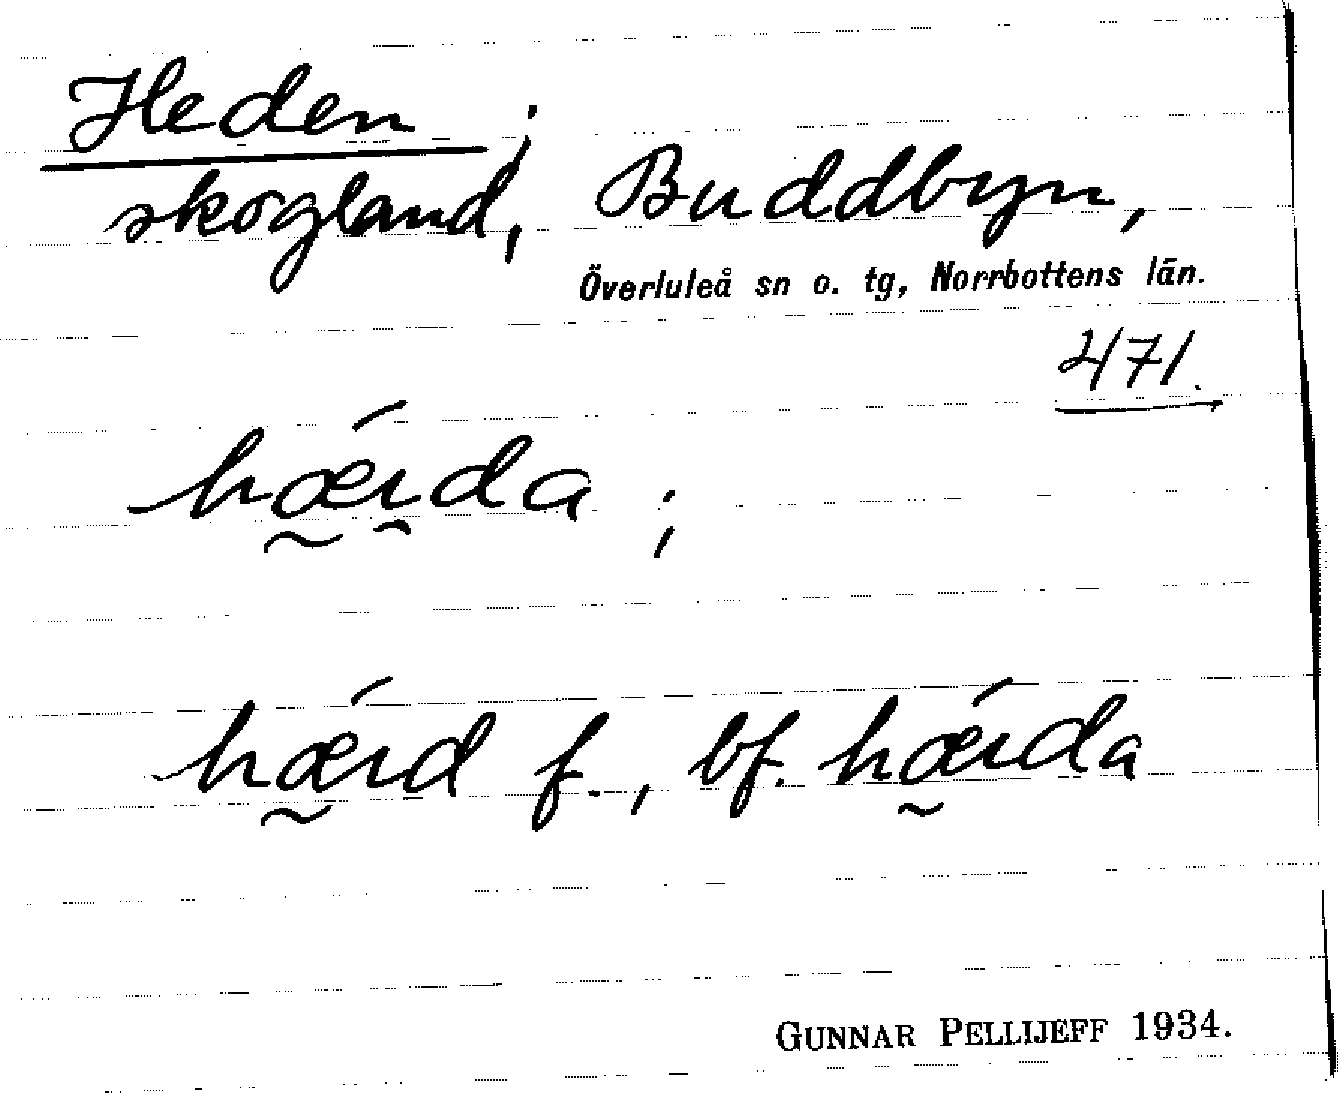 Heden;
skogland, Buddbyn,
Överluleå sn o. tg, Norrbottens län.
471.
hǽıda;
hǽıd f., bf. hǽıda
GUNNAR PELLIJEFF 1934.